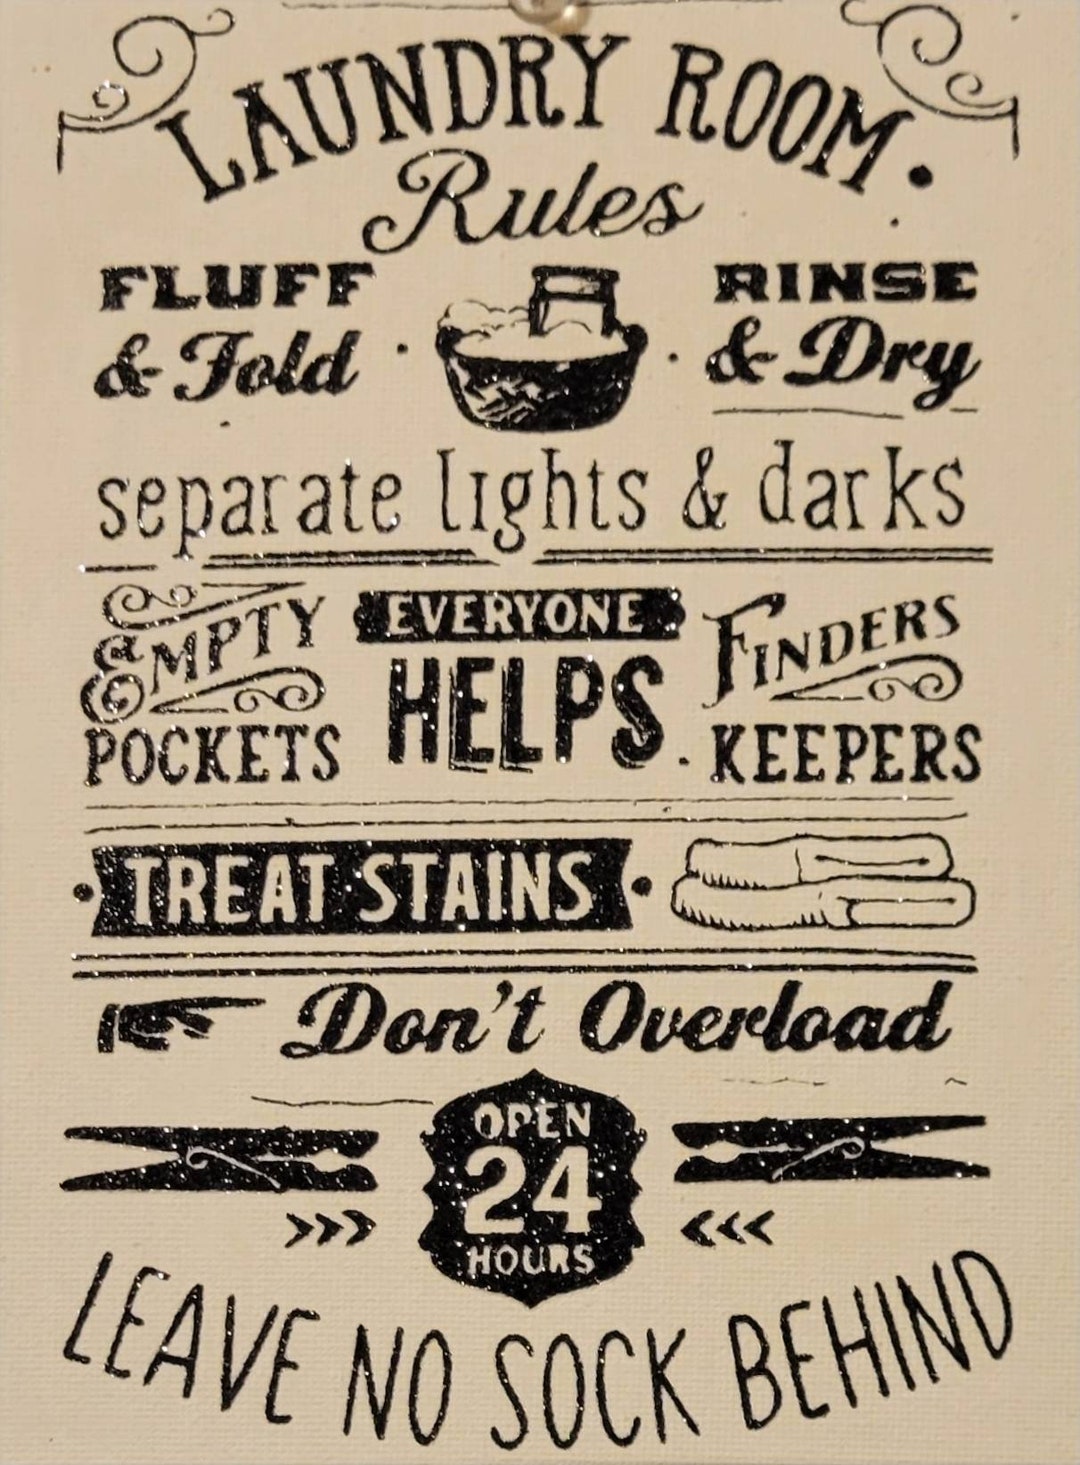 LAUNDRY ROOM.
Rules
FLUFF
& Fold
RINSE
& Dry
separate lights & darks
EMPTY
POCKETS
EVERYONE
HELPS
FINDERS
KEEPERS
TREAT STAINS
Don't Overload
OPEN
24
HOURS
>>> <<<
LEAVE NO SOCK BEHIND